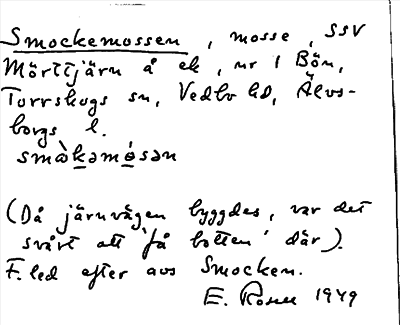 Smockemossen, mosse, SSV
Mörttjärn å ek, nr 1 Bön,
Torrskogs sn, Vedbo hd, Älvs-
borgs l.
smàkəmósən
(Då järnvägen byggdes, var det
svårt att 'få botten' där).
F. led efter avs Smocken.
E. Rosell 1949